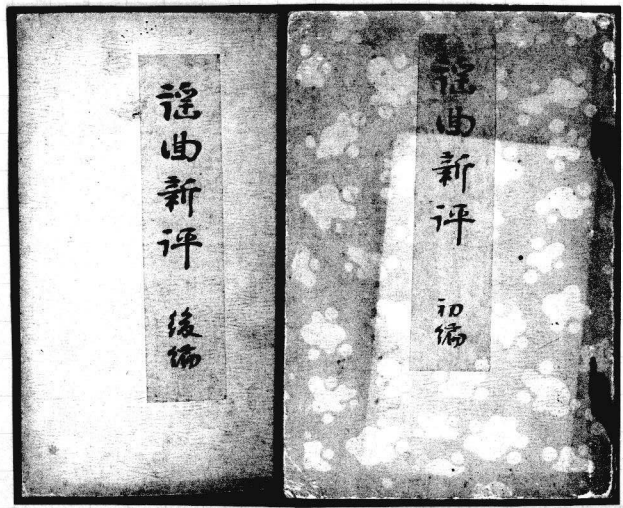 謡曲新評 初編
謡曲新評 後編